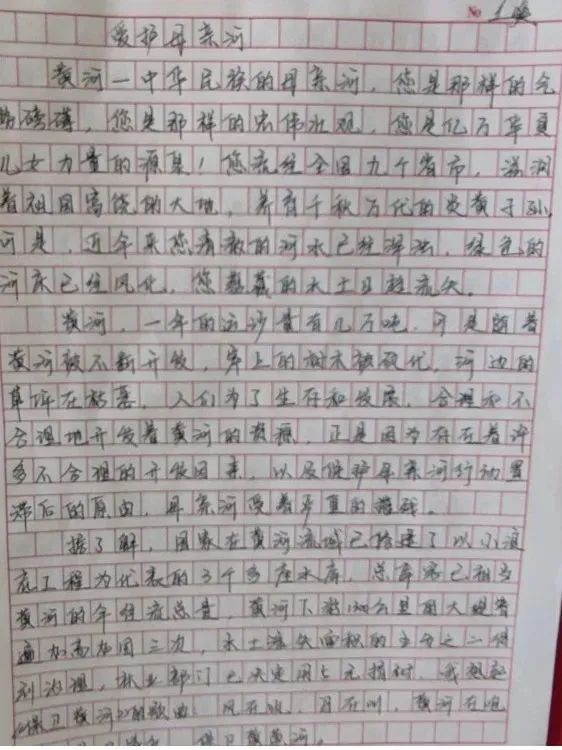 No
爱护母亲河
黄河一中华民族的母亲河，您是那样的气
势磅礴，您是那样的宏伟壮观，您是亿万华夏
儿女力量的源泉！您流经全国九个省市，滋润
着祖国富饶的大地，养育千秋万代的炎黄子孙。
可是，近年来您清澈的河水已经浑浊，绿色的
河床已经风化，您蕴藏的水土日趋流失。
黄河，一年的运沙量有几万吨，可是随着
黄河被不断开放，岸上的树木被砍伐，河边的
草坪在枯萎，人们为了生存和发展，合理和不
合理地开发着黄河的资源，正是因为存在着许
多不合理的开放因素，以及保护母亲河行动置
滞后的原由，母亲河受着严重的摧残。
据了解，国家在黄河流域已修建了以小浪
底工程为代表的3千多座水库，总库容已相当
黄河的年径流总量，黄河下游公里的大堤普
遍加高加固三次，水土流失面积的三分之二得
到治理，林业部门已决定用5元捐树，我想起
保卫黄河的歌曲：风在吼，马在叫，黄河在咆
保卫黄河。